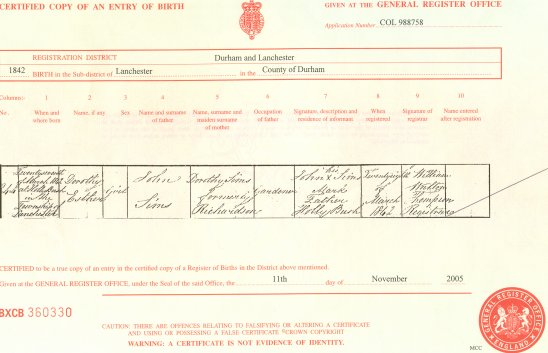 CERTIFIED COPY OF AN ENTRY OF BIRTH
GIVEN AT THE GENERAL REGISTER OFFICE
Application Number COL 988758
REGISTRATION DISTRICT Durham and Lanchester
1842 BIRTH in the Sub-district of Lanchester in the County of Durham
Columns:- 1 2 3 4 5 6 7 8 9 10
No. When and where born Name, if any Sex Name and surname of father Name, surname and maiden surname of mother Occupation of father Signature, description and residence of informant When registered Signature of registrar Name entered after registration
March
in the
Township of
Lanchester
Dorothy
Esther
Girl
John
Sims
Dorothy Sims
formerly
Richardson
Gardener
John his x Sims
Mark
Father
Holly Bush
of
March
1842
William
Registrar
CERTIFIED to be a true copy of an entry in the certified copy of a Register of Births in the District above mentioned.
Given at the GENERAL REGISTER OFFICE, under the Seal of the said Office, the 11th day of November 2005
BXCB 360330
CAUTION: THERE ARE OFFENCES RELATING TO FALSIFYING OR ALTERING A CERTIFICATE
AND USING OR POSSESSING A FALSE CERTIFICATE ©CROWN COPYRIGHT
WARNING: A CERTIFICATE IS NOT EVIDENCE OF IDENTITY.
GENERAL REGISTER OFFICE
ENGLAND
MCC